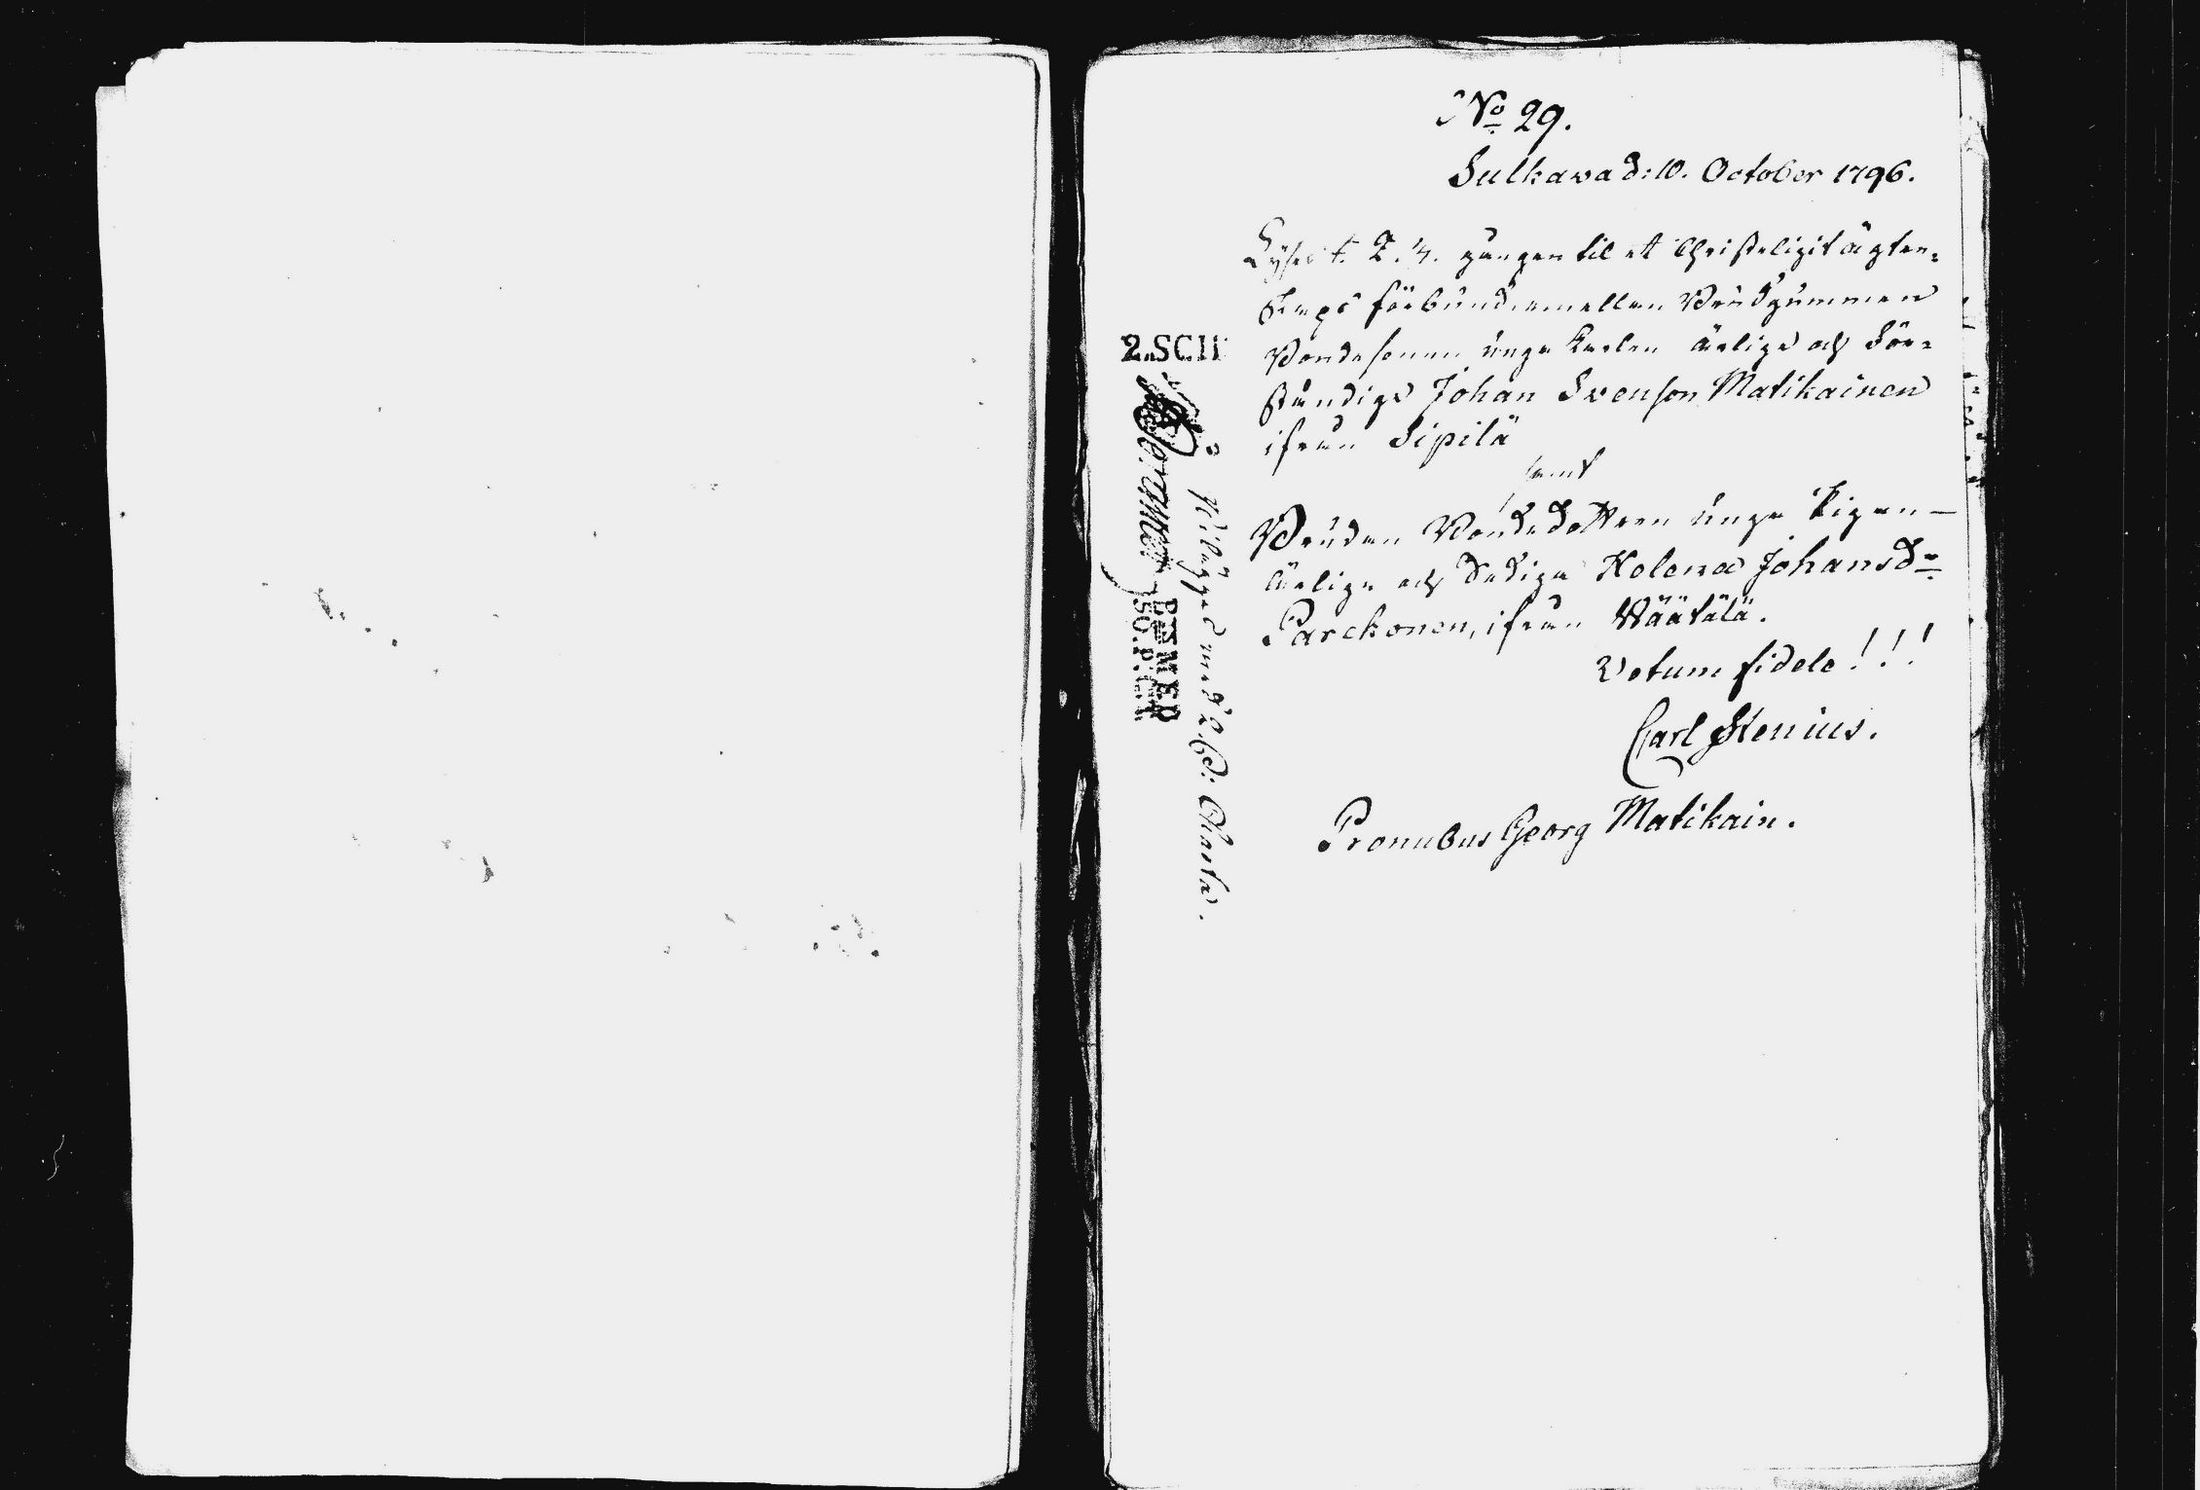 No 29.
Sulkava d: 10. October 1796.
Lyses 1. 2. 3. gången til et Christeligit ägten-
skaps förbund emellan Brudgummen
Bondesonen unga Karlen ärlige och för-
ståndige Johan Svenson Matikainen
ifrån Sipilä
samt
Bruden Bondedottren unga Pigan
ärliga och dydiga Helena Johansdr
Parckonen, ifrån Väätälä.
Votum fidele!!!
Carl Stenius.
Pronubus Georg Matikain.
2. SCH
Belägges med 2 s: Charta.